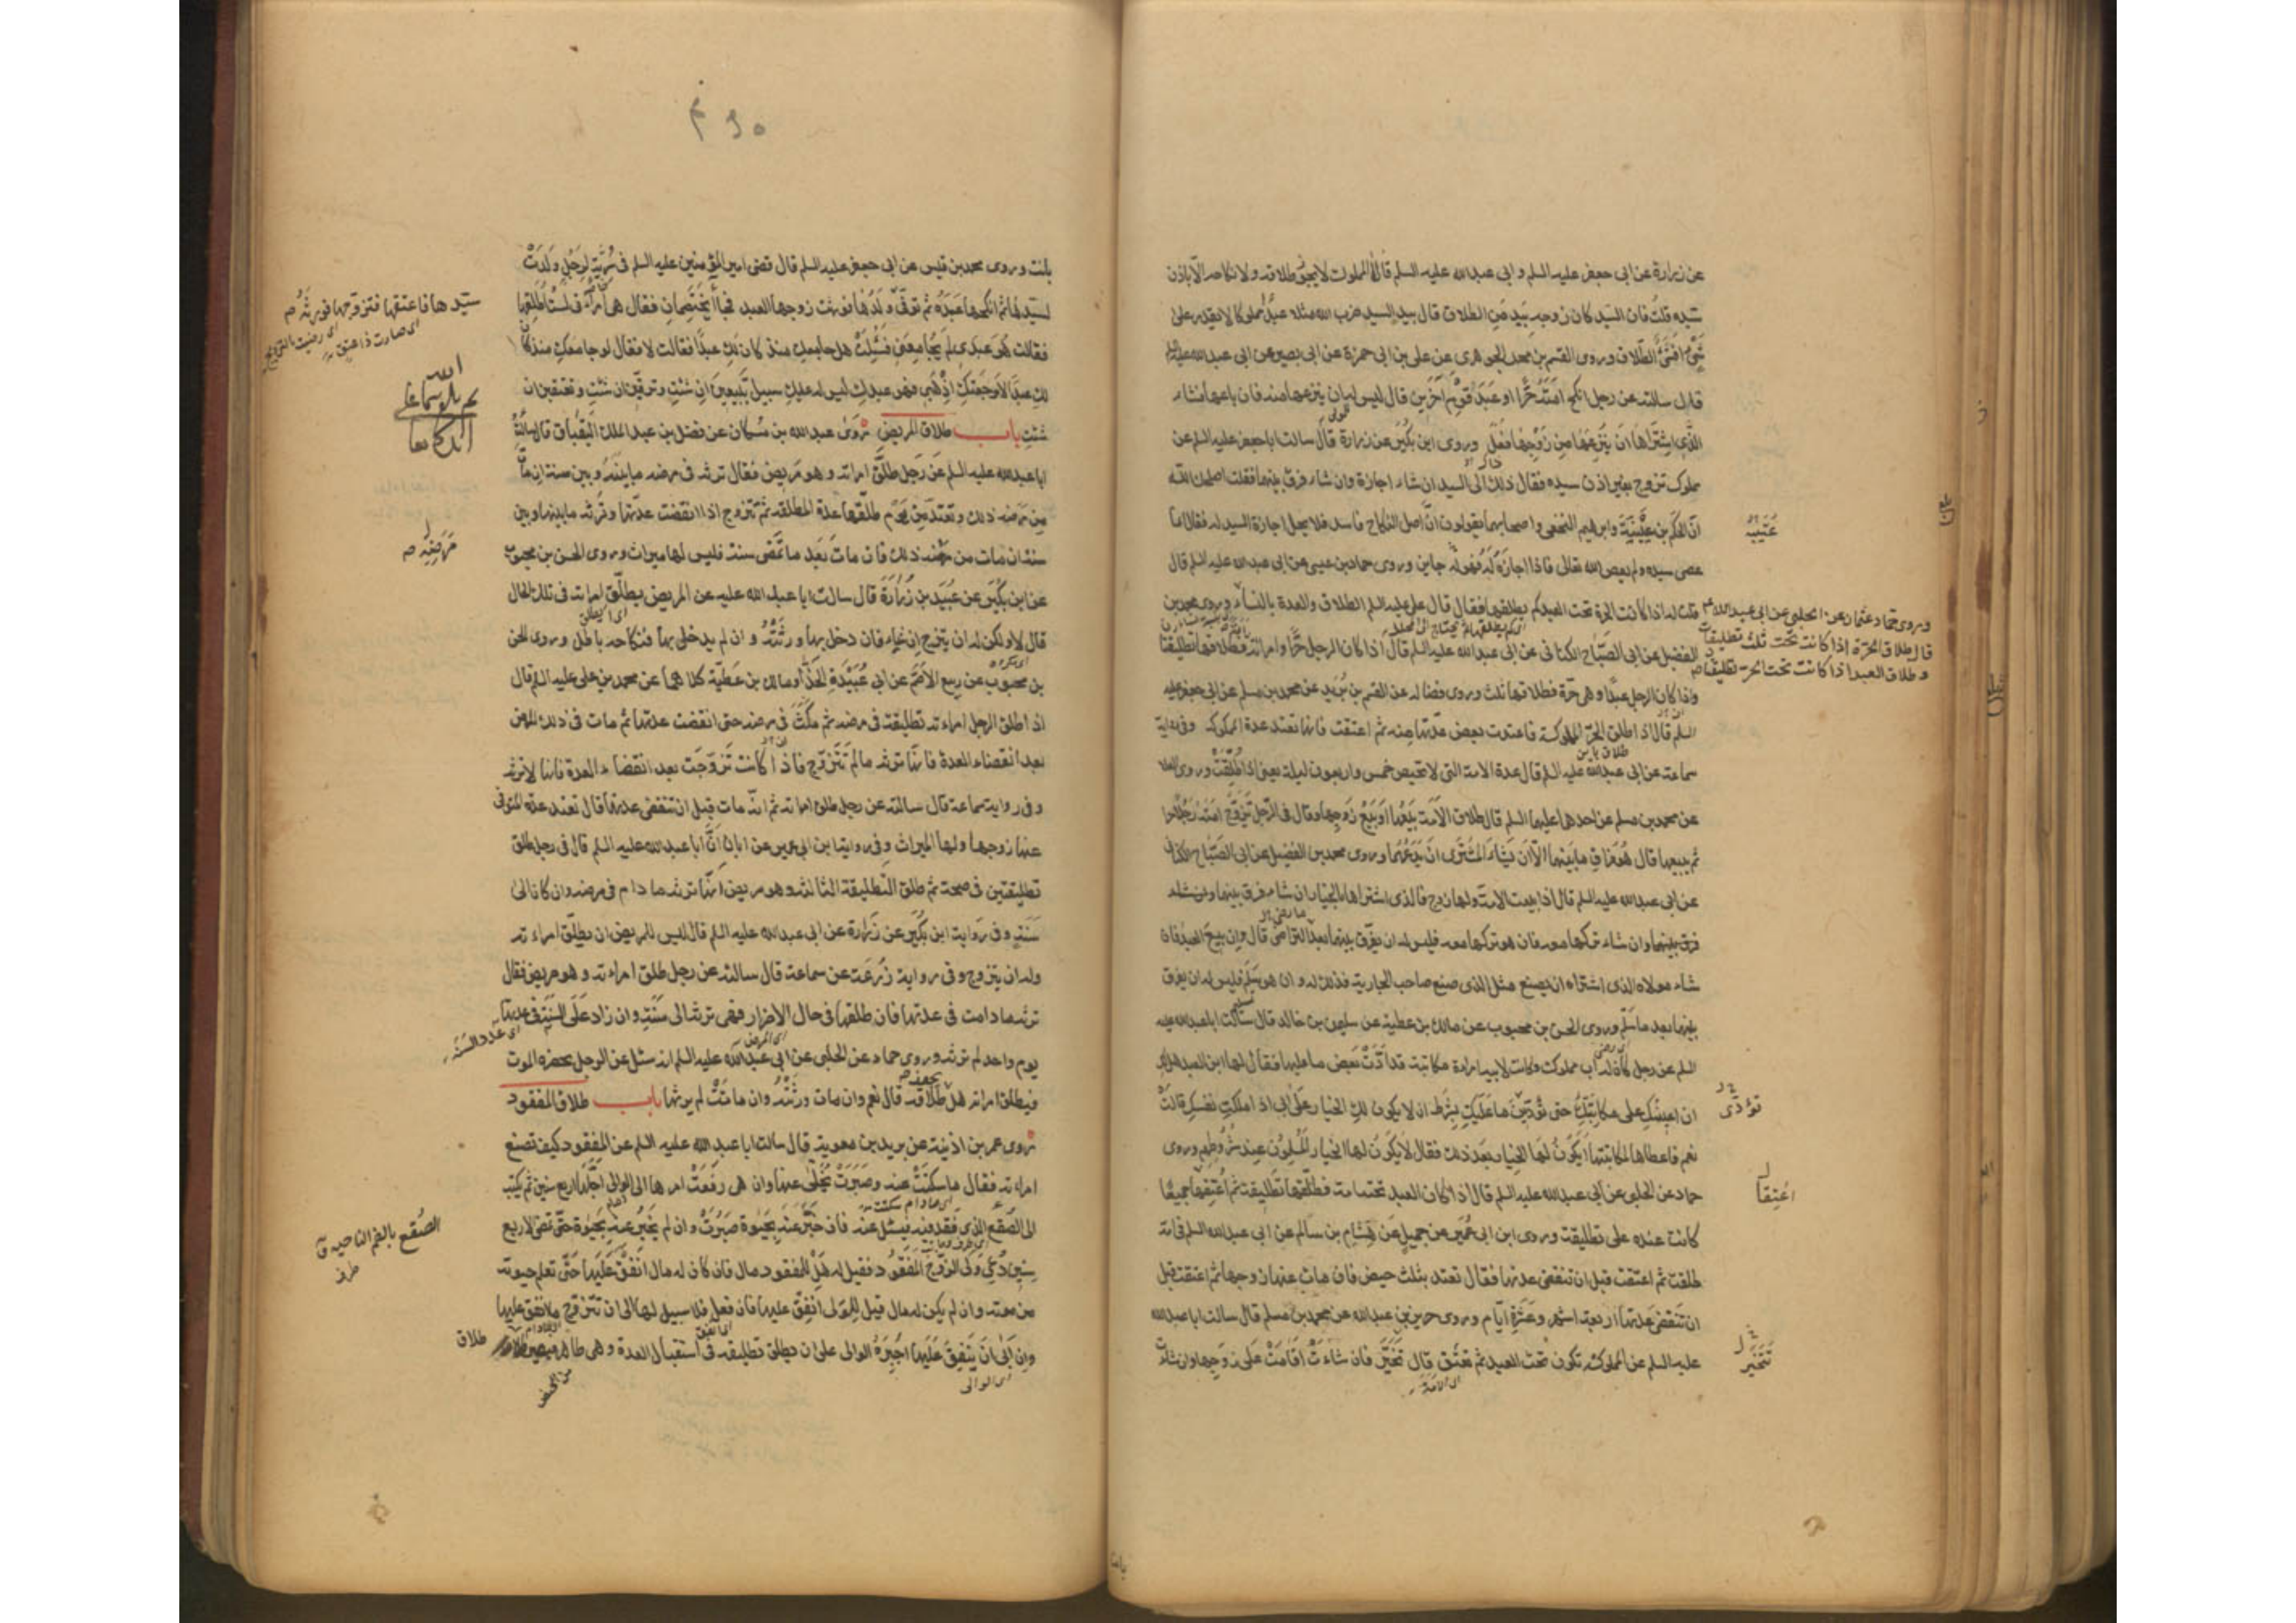 عن زرارة عن ابى جعفر عليه السلم وابى عبدالله عليه السلم قالا المملوك لا يجوز طلاقه ولا نكاحه الا باذن
سيده قلت فان السيد كان زوجه بيد من الطلاق قال بيد السيد ضرب الله مثلا عبدا مملوكا لا يقدر على
شئ افشئ الطلاق وروى القسم بن محمد الجوهرى عن على بن ابى حمزة عن ابى بصير عن ابى عبدالله عليه السلم
قال سالته عن رجل انكح امته حرا او عبد قوم آخرين قال ليس له ان ينزعها منه فان باعها فشاء
الذى اشتراها ان ينزعها من زوجها فعل وروى ابن بكير عن زرارة قال سالت ابا جعفر عليه السلم عن
مملوك تزوج بغير اذن سيده فقال ذلك الى السيد ان شاء اجازه وان شاء فرق بينهما فقلت اصلحك الله
ان الحكم بن عيينة وابرهيم النخعى واصحابهما يقولون ان اصل النكاح فاسد فلا يحل اجازة السيد له فقال انما
عتيبه
عصى سيده ولم يعص الله تعالى فاذا اجازه له فهو له جايز وروى حماد بن عيسى عن ابى عبدالله عليه السلم قال
قلت له اذا كانت الحرة تحت العبد كم يطلقها فقال قال على عليه السلم الطلاق والعدة بالنساء وروى محمد بن
وروى حماد بن عثمان عن الحلبى عن ابى عبدالله
قال طلاق الحرة اذا كانت تحت ثلث تطليقات
وطلاق العبد اذا كانت تحت الحر تطليقتان
الفضيل عن ابى الصباح الكنانى عن ابى عبدالله عليه السلم قال اذا كان الرجل حرا وامراته فطلاقها تطليقتان
واذا كان الرجل عبدا وهى حرة فطلاقها ثلث وروى فضاله عن القسم بن بريد عن محمد بن مسلم عن ابى جعفر عليه
السلم قال اذا طلق الحر المملوكة فاعتدت بعض عدتها منه ثم اعتقت فانها تعتد عدة المملوكة وفى رواية
سماعة عن ابى عبدالله عليه السلم قال عدة الامة التى لا تحيض خمس واربعون ليلة يعنى اذا طلقت وروى العلا
عن محمد بن مسلم عن احدهما عليهما السلم قال طلاق الامة بيعها او بيع زوجها وقال فى الرجل يزوج امته رجلا حرا
ثم يبيعها قال هو فراق ما بينهما الا ان يشاء المشترى ان يدعهما وروى محمد بن الفضيل عن ابى الصباح الكنانى
عن ابى عبدالله عليه السلم قال اذا بيعت الامة ولها زوج فالذى اشتراها بالخيار ان شاء فرق بينهما
فرق بينهما وان شاء تركها معه فان هو تركها معه فليس له ان يفرق بينهما بعد التراضى قال وان بيع العبد فان
شاء مولاه الذى اشتراه ان يصنع مثل الذى صنع صاحب الجارية فذلك له وان هو سلم فليس له ان يفرق
بينهما بعد ما سلم وروى الحسن بن محبوب عن مالك بن عطية عن سليمن بن خالد قال سالت ابا عبدالله عليه
السلم عن رجل كان له اب مملوك وكانت لابيه امراة مكاتبة قد ادت بعض ما عليها فقال لها ابن العبد هل لك
ان اعينك على مكاتبتك حتى تؤدين ما عليك بشرط ان لا يكون لك الخيار على ابى اذا ملكت نفسك قالت
تؤدى
نعم فاعطاها لمكاتبتها ايكون لها الخيار بعد ذلك فقال لا يكون لها الخيار المسلمون عند شروطهم وروى
حماد عن الحلبى عن ابى عبدالله عليه السلم قال اذا كان العبد تحته امة فطلقها تطليقة ثم اعتقها جميعا
اعتقا
كانت عنده على تطليقة وروى ابن ابى عمير عن جميل عن هشام بن سالم عن ابى عبدالله السلم فى امة
طلقت ثم اعتقت قبل ان تنقضى عدتها فقال تعتد بثلث حيض فان مات عنها زوجها ثم اعتقت قبل
ان تنقضى عدتها اربعة اشهر وعشرة ايام وروى حريز بن عبدالله عن محمد بن مسلم قال سالت ابا عبدالله
عليه السلم عن المملوكة تكون تحت العبد ثم تعتق قال تخير فان شاءت اقامت على زوجها وان شاءت
تتخير
اى الامة
بانت وروى محمد بن قيس عن ابى جعفر عليه السلم قال قضى امير المؤمنين عليه السلم فى سرية لرجل ولدت
لسيدها ثم انكحها عبده ثم توفى ولدها فورثت زوجها العبد فجاءا يختصمان فقال هى امراتى لست اطلقها
سيدها فاعتقها فتزوجها فورثه
فقالت هو عبدى لم يجامعنى فسئلت هل جامعك منذ كان لك عبدا فقالت لا فقال لو جامعك منذ كان
لك عبدا لاوجعتك اذهبى فهو عبدك ليس له عليك سبيل تبيعين ان شئت وترقين ان شئت وتعتقين ان
شئت باب طلاق المريض روى عبدالله بن مسكان عن فضل بن عبد الملك البقباق قال سالت
ابا عبدالله عليه السلم عن رجل طلق امراته وهو مريض فقال ترثه فى مرضه ما بينه وبين سنة ان مات
من مرضه ذلك وتعتد من يوم طلقها عدة المطلقة ثم تتزوج اذا انقضت عدتها وترثه ما بينها وبين
سنة ان مات من مرضه ذلك فان مات بعد ما تمضى سنة فليس لها ميراث وروى الحسن بن محبوب
مرضه
عن ابن بكير عن عبيد بن زرارة قال سالت ابا عبدالله عليه عن المريض يطلق امراته فى تلك الحال
قال لا ولكن له ان يتزوج ان شاء فان دخل بها ورثته وان لم يدخل بها فنكاحه باطل وروى الحسن
بن محبوب عن ربيع الاصم عن ابى عبيدة الحذاء ومالك بن عطية كلاهما عن محمد بن على عليه السلم قال
اذا طلق الرجل امراته تطليقة فى مرضه ثم مكث فى مرضه حتى انقضت عدتها ثم مات فى ذلك المرض
بعد انقضاء العدة فانها ترثه ما لم تتزوج فاذا كانت تزوجت بعد انقضاء العدة فانها لا ترثه
وفى رواية سماعة قال سالته عن رجل طلق امراته ثم انه مات قبل ان تنقضى عدتها قال تعتد عدة المتوفى
عنها زوجها ولها الميراث وفى رواية ابن ابى عمير عن ابان ان ابا عبدالله عليه السلم قال فى رجل طلق
تطليقتين فى صحة ثم طلق التطليقة الثالثة وهو مريض انها ترثه ما دام فى مرضه وان كان الى
سنة وفى رواية ابن بكير عن زرارة عن ابى عبدالله عليه السلم قال ليس للمريض ان يطلق امراءته
وله ان يتزوج وفى رواية زرعة عن سماعة قال سالته عن رجل طلق امراءته وهو مريض فقال
ترثه ما دامت فى عدتها فان طلقها فى حال الاضرار فهى ترثه الى سنة وان زاد على السنة فى عدتها
يوم واحد لم ترثه وروى حماد عن الحلبى عن ابى عبدالله عليه السلم انه سئل عن الرجل يحضره الموت
اى عدد السنة
فيطلق امراته هل طلاقه قال نعم وان مات ورثته وان ماتت لم يرثها باب طلاق المفقود
روى عمر بن اذينة عن بريد بن معوية قال سالت ابا عبدالله عليه السلم عن المفقود كيف تصنع
امراته فقال ما سكتت عنه وصبرت يخلى عنها وان هى رفعت امرها الى الوالى اجلها اربع سنين ثم يكتب
الى الصقع الذى فقد فيه فيسئل عنه فان خبر عنه بحيوة صبرت وان لم يخبر عنه بحيوة حتى تمضى الاربع
الصقع بالضم الناحيه ق
سنين دعى ولى الزوج المفقود فقيل له هل للمفقود مال فان كان له مال انفق عليها حتى تعلم حيوته
من موته وان لم يكن له مال قيل للولى انفق عليها فان فعل فلا سبيل لها الى ان تتزوج ما انفق عليها
وان ابى ان ينفق عليها اجبره الوالى على ان يطلق تطليقة فى استقبال العدة وهى طاهر فيصير طلاق
اى الوالى
من الحيض